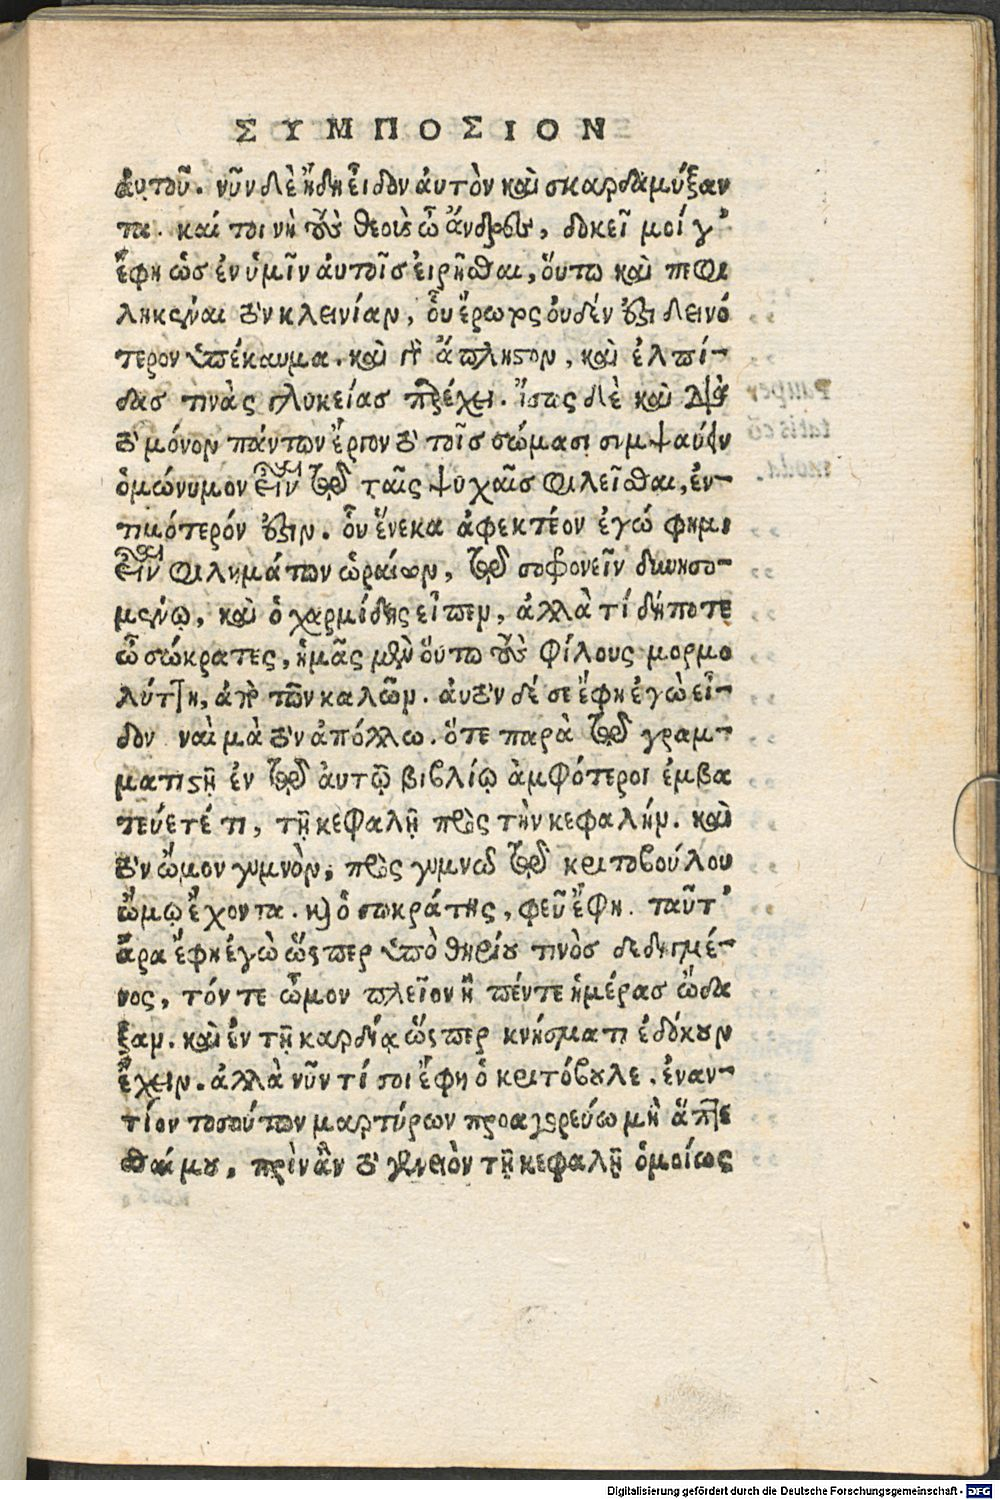 ΣΥΜΠΟΣΙΟΝ
ἀυτοῦ. νῦν δὲ ἤδη εἶδον ἀυτὸν καὶ σκαρδαμύξαν
τα. καί τοι νὴ τοὺς θεοὺς ὦ ἄνδρες, δοκεῖ μοί γ’
ἔφη ὡς ἐν ὑμῖν ἀυτοῖς ειρῆσθαι, ὅυτω καὶ πεφι
ληκέναι τὸν κλεινίαν, οὗ ἔρωτος ὀυδέν ἐστι δεινό
τερον ὑπέκαυμα. καὶ γὰρ ἄπληστον, καὶ ἐλπί-
δας τινὰς γλυκείας παρέχει. ἴσως δὲ καὶ διὰ
τὸ μόνον πάντων ἔργον τὸ τοῖς σώμασι συμψαύειν
ὁμώνυμον εἶναι τῷ ταῖς ψυχαῖς φιλεῖσθαι, ἐν-
τιμότερόν ἐστιν. οὗ ἕνεκα ἀφεκτέον ἐγώ φημι
εἶναι φιλημάτων ὡραίων, τῷ σωφρονεῖν δυνησο-
μένῳ, καὶ ὁ χαρμίδης εἶπεν, ἀλλὰ τί δήποτε
ὦ σώκρατες, ἡμᾶς μὲν ὅυτω τοὺς φίλους μορμο
λύττῃ, ἀπὸ τῶν καλῶν. ἀυτὸν δέ σε ἔφη ἐγὼ εἶ-
δον ναὶ μὰ τὸν ἀπόλλω. ὅτε παρὰ τῷ γραμ-
ματιστῇ ἐν τῷ ἀυτῷ βιβλίῳ ἀμφότεροι ἐμβα
τεύετέ τι, τῇ κεφαλῇ πρὸς τὴν κεφαλήν. καὶ
τὸν ὦμον γυμνὸν, πρὸς γυμνῷ τῷ κριτοβούλου
ὤμῳ ἔχοντα. καὶ ὁ σωκράτης, φεῦ ἔφη. ταῦτ’
ἄρα ἔφη ἐγὼ ὥσπερ ὑπὸ θηρίου τινὸς δεδηγμέ-
νος, τόν τε ὦμον πλεῖον ἢ πέντε ἡμέρας ὤδα
ξαν. καὶ ἐν τῇ καρδίᾳ ὥσπερ κνῆσμά τι ἐδόκουν
ἔχειν. ἀλλὰ νῦν τί σοι ἔφη ὁ κριτόβουλε. ἐναν-
τίον τοσούτων μαρτύρων προαγορεύω μὴ ἅπτε
σθαί μου, πρὶν ἂν τὸ γένειον τῇ κεφαλῇ ὁμοίως
Digitalisierung gefördert durch die Deutsche Forschungsgemeinschaft - DFG